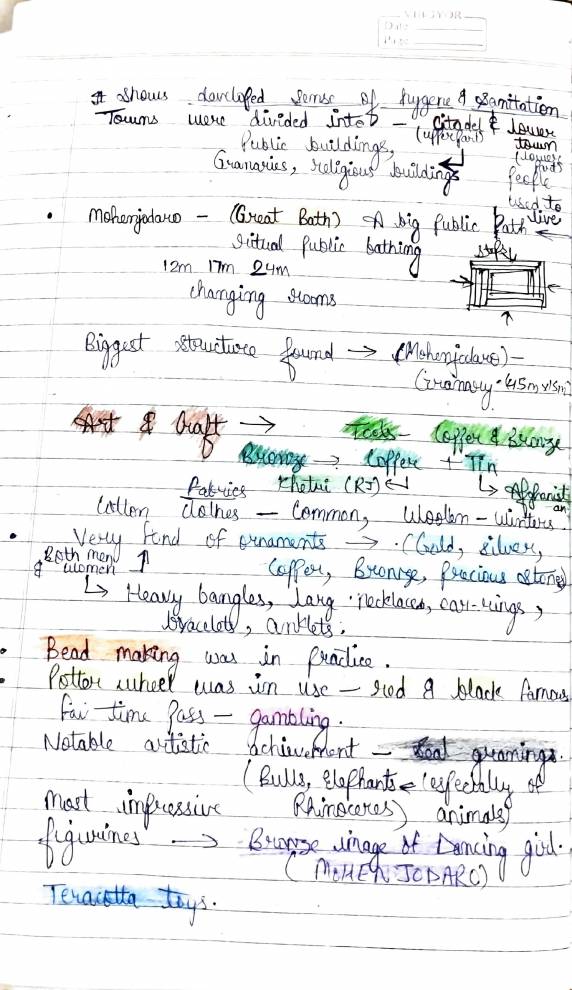 Date
Page
It shows davloped sense of hygene & Sanitation
Towns were divided into → Citadel & lower town
(upper part) (lower part)
Public buildings,
Granaries, religious buildings
people used to live
• Mohenjodaro - (Great Bath) → A big public Bath
ritual public bathing
12m 17m 24m
changing rooms
Biggest structure found → (Mohenjodaro) -
Granary - (45m x 15m)
Art & Craft → Tools - Copper & Bronze
Bronze → Copper + Tin
Khetri (RJ) Afghanistan
Fabrics
Cotton clothes - Common, Woolen - winters.
• Very fond of ornaments → (Gold, silver,
Both men & women
Copper, Bronze, precious stones)
↳ Heavy bangles, larg necklaces, ear-rings,
bracelets, anklets.
• Bead making was in practice.
• Potter wheel was in use - red & black famous
For time pass - gambling.
Notable artistic achievement - Seal
(Bulls, Elephants (especially of
Rhinoceres) animals)
most impressive
figurines → Bronze image of Dancing girl.
(MOHENJODARO)
Teracotta toys.